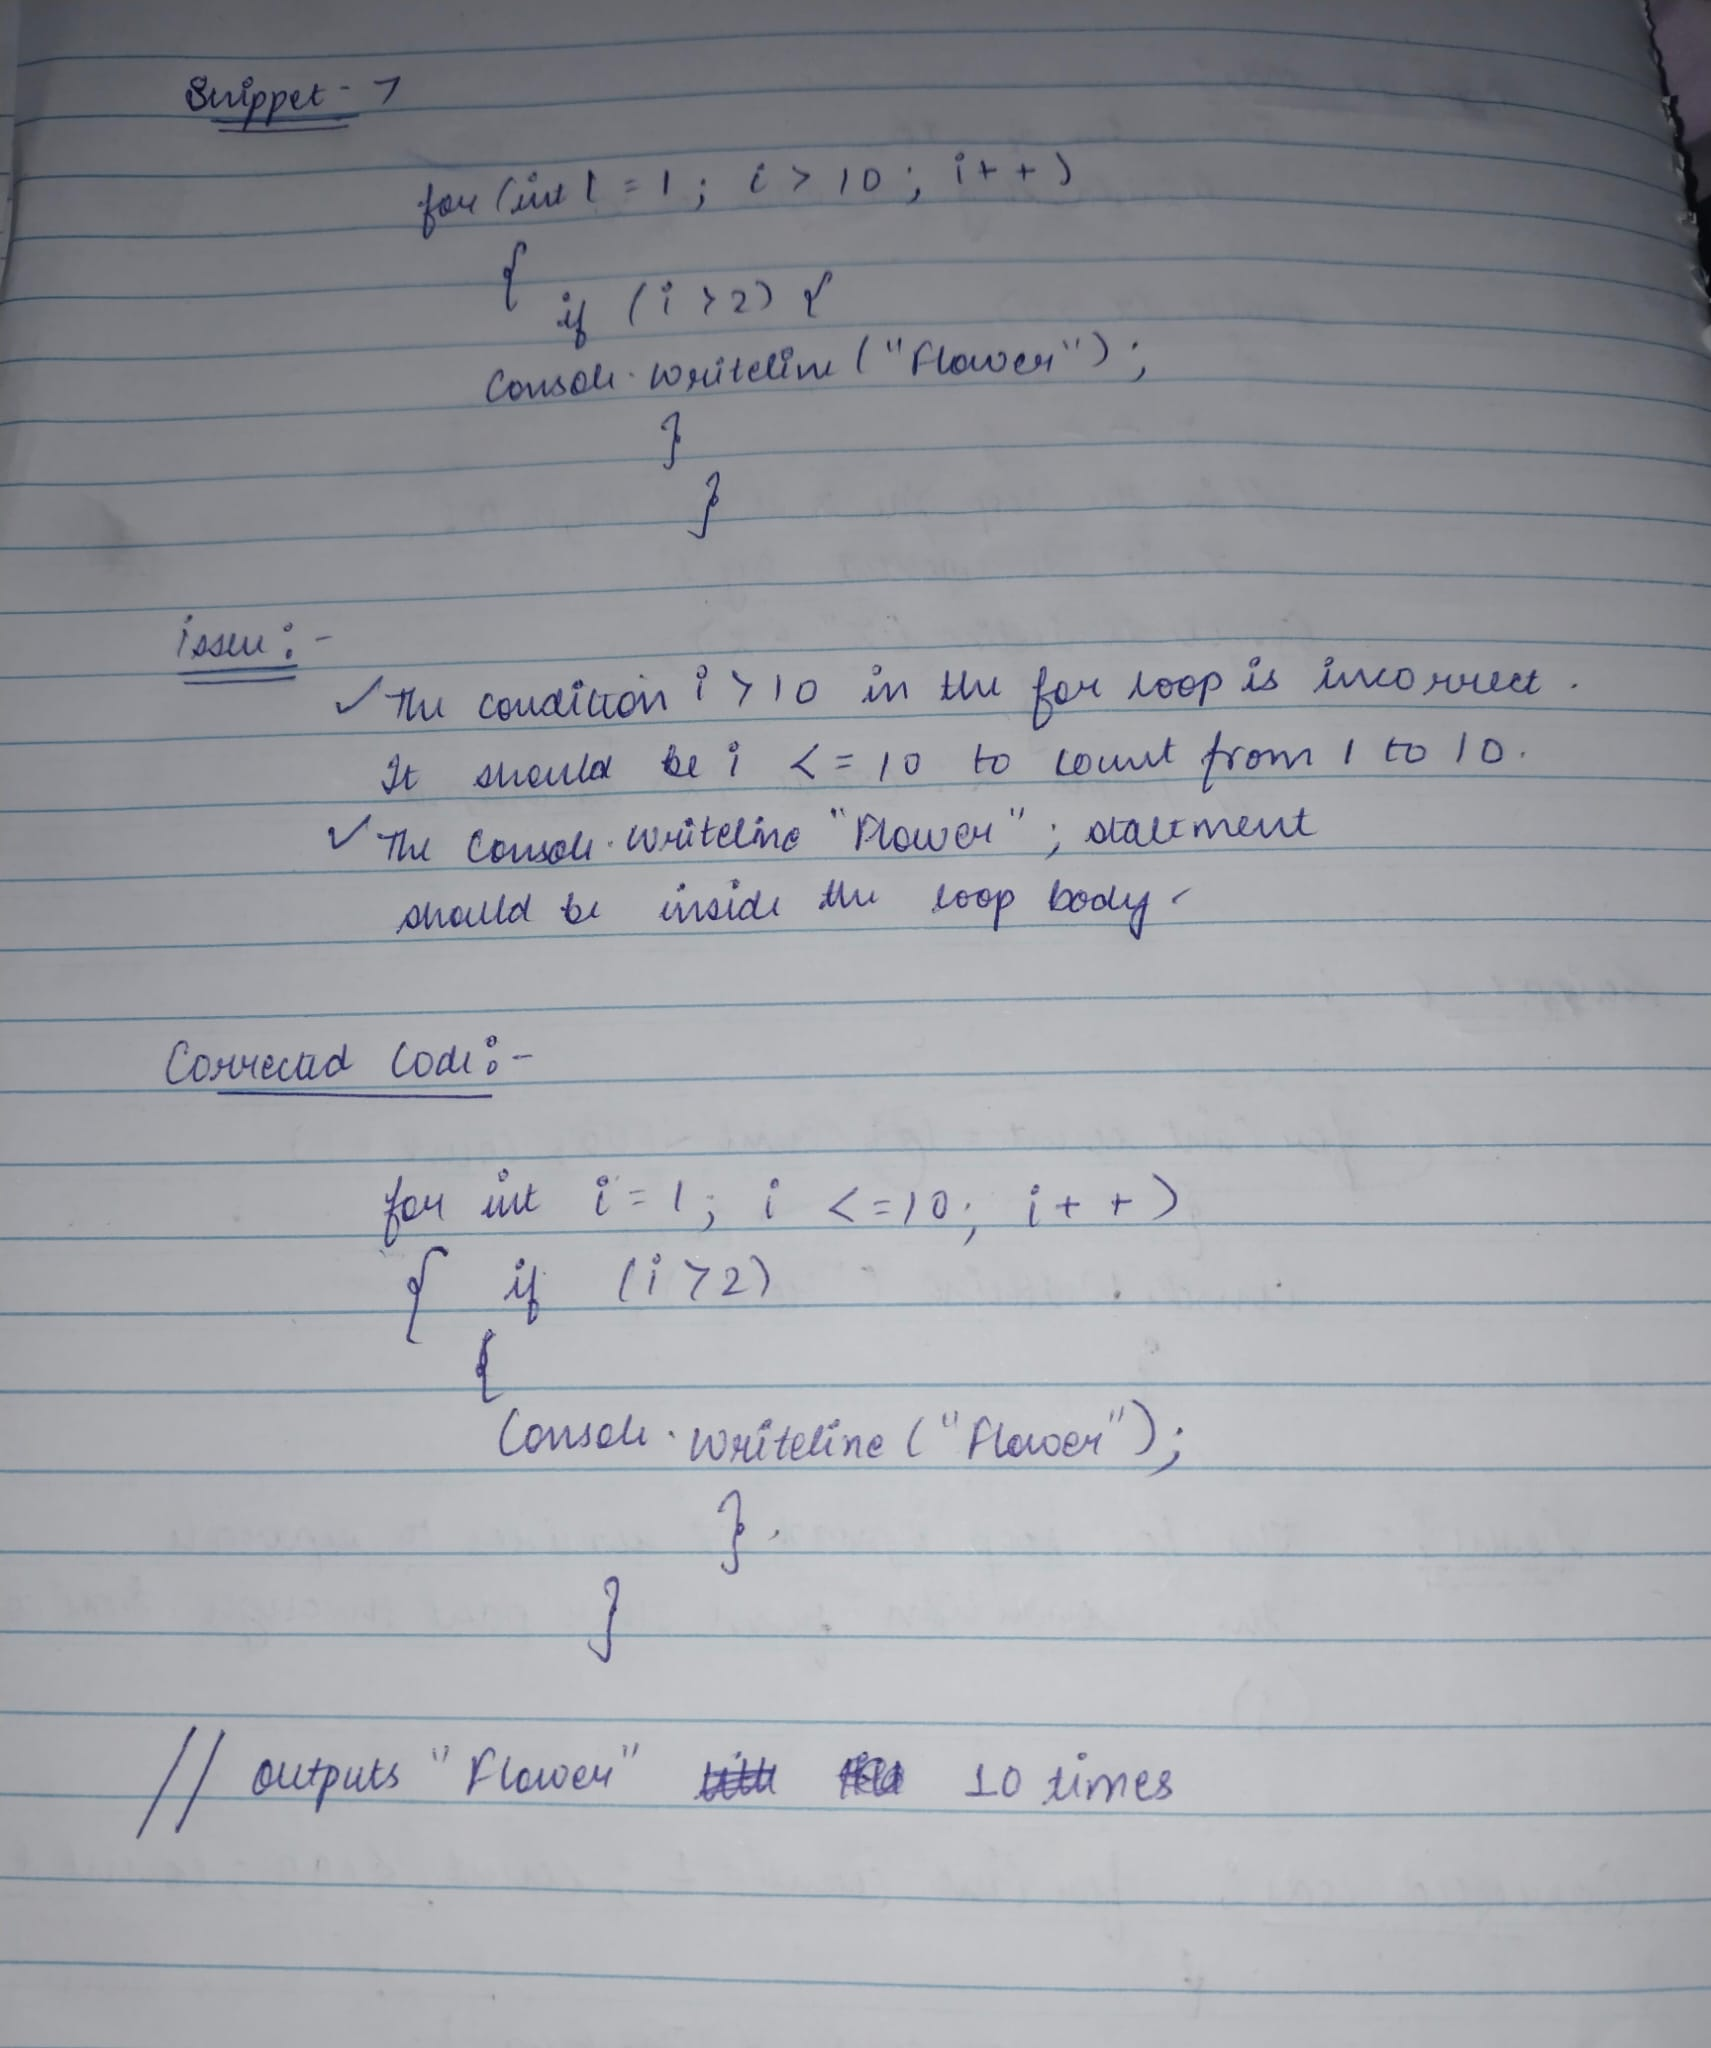 Snippet - 7
for (int i = 1; i > 10; i++)
{
if (i > 2) {
Console.writeline ("Flower");
}
}
issue :-
✓ The condition i > 10 in the for loop is incorrect.
It should be i <= 10 to count from 1 to 10.
✓ The Console.writeline "Flower" ; statement
should be inside the loop body.
Corrected Code :-
for int i = 1; i <= 10; i++)
{ if (i > 2)
{
Console.writeline ("Flower");
}
}
// outputs "Flower" 10 times